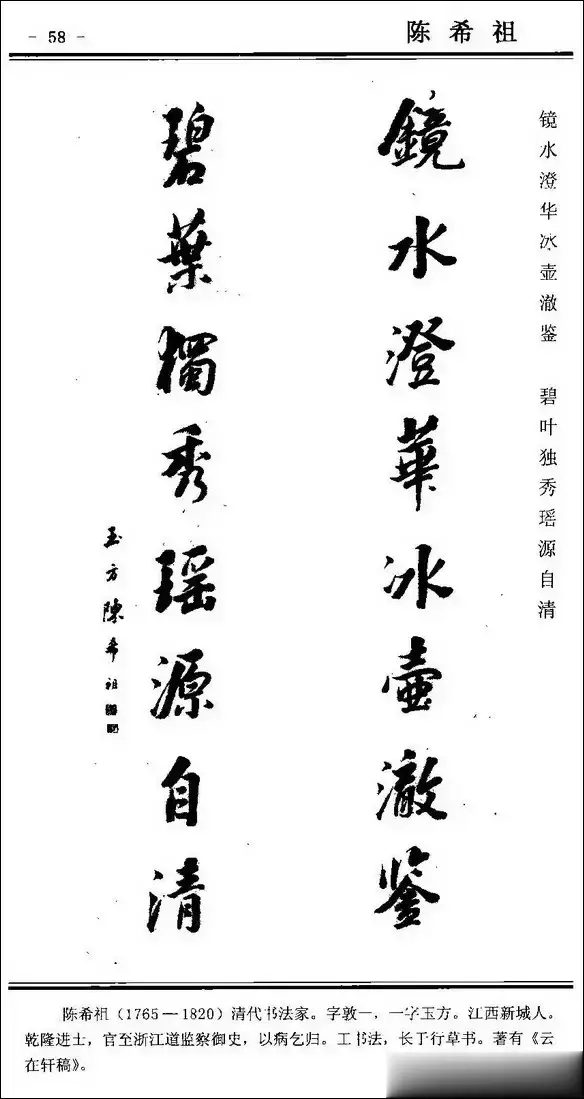 - 58 -
陈希祖
镜水澄华冰壶澈鉴 碧叶独秀瑶源自清
鏡水澄華冰壺澈鉴
碧葉獨秀瑶源自清
玉方陳希祖
陈希祖(1765—1820)清代书法家。字敦一,一字玉方。江西新城人。
乾隆进士,官至浙江道监察御史,以病乞归。工书法,长于行草书。著有《云
在轩稿》。